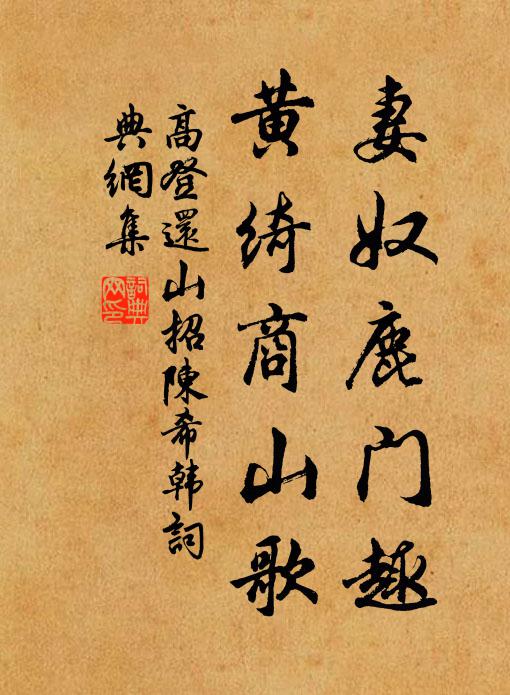 妻奴鹿门趣
黄绮商山歌
高登還山招陳希韩詞
典網集
詞典網印